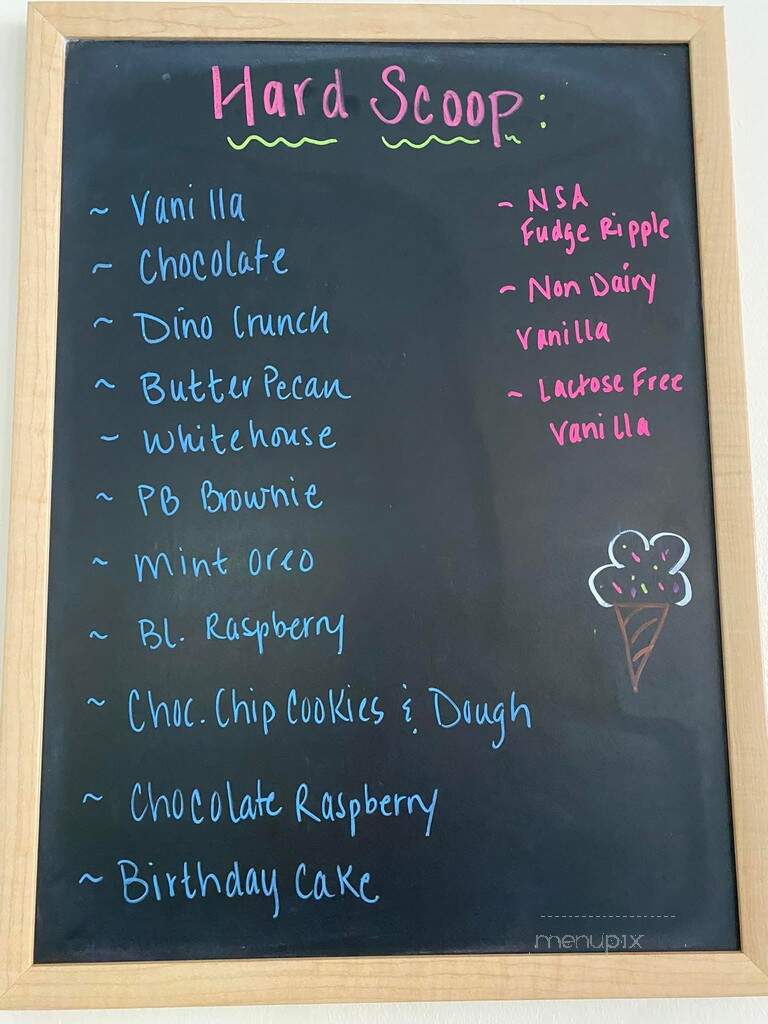 Hard Scoop:
~ Vanilla
~ Chocolate
~ Dino Crunch
~ Butter Pecan
~ Whitehouse
~ PB Brownie
~ Mint Oreo
~ Bl. Raspberry
~ Choc. Chip Cookies & Dough
~ Chocolate Raspberry
~ Birthday Cake
~ NSA
Fudge Ripple
~ Non Dairy
Vanilla
~ Lactose Free
Vanilla
menupix